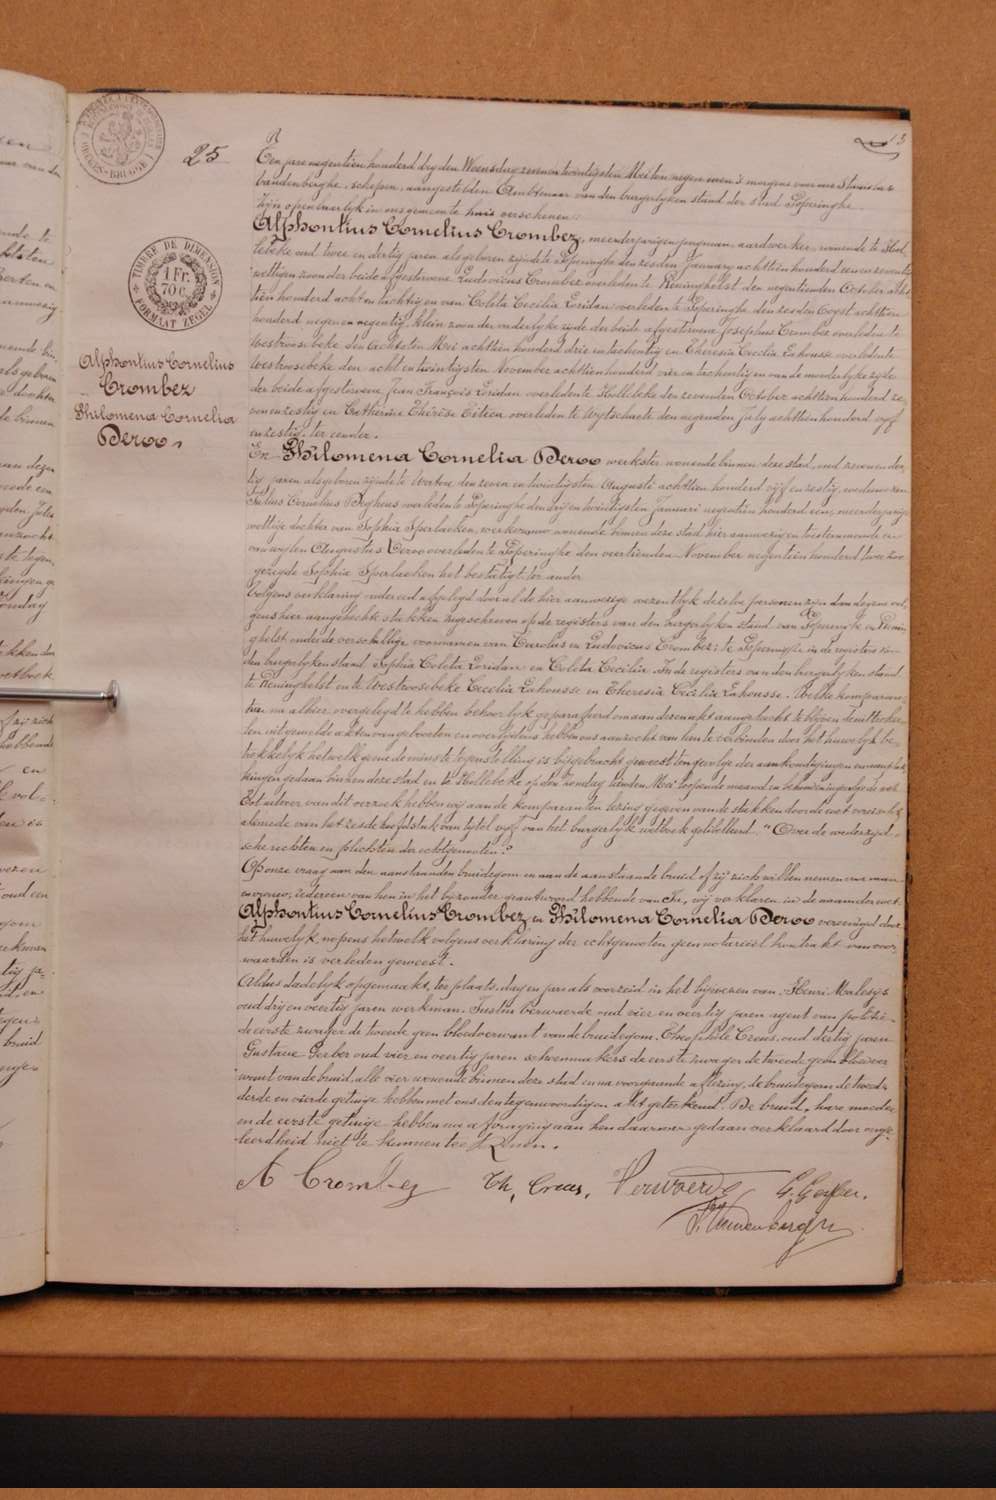 25
13
TIMBRE DE DIMENSION
1 Fr.
70 c.
FORMAAT ZEGEL
Alphontius Cornelius
Crombez
Philomena Cornelia
Deroo
Een jare negentien honderd dry den Woensdag zeven en twintigsten Mei ten negen uren 's morgens voor ons
vandenberghe, schepen, aangestelden Ambtenaar van den burgerlyken stand der stad Poperinghe
zyn openbaarlyk in ons gemeente huis verschenen:
Alphontius Cornelius Crombez, meerderjarigen jongman, aardwerker, wonende te Hol-
lebeke oud twee en dertig jaren als geboren zynde te Poperinghe den zesden January achttien honderd een en zeventig
wettigen zoon der beide afgestorvene Ludovicus Crombez overleden te Reninghelst den negentienden October acht-
tien honderd acht en tachtig en van Coleta Cecilia Loridan overleden te Poperinghe den zesden Oogst achttien
honderd negen en negentig, klein zoon der vaderlyke zyde der beide afgestorvene Josephus Crombez overleden te
Westroosebeke den achtsten Mei achttien honderd drie en tachentig en Theresia Cecilia Lahousse overledente
Westroosebeke den acht en twintigsten November achttien honderd vier en tachentig en van de moederlyke zyde
der beide afgestorvene Jean François Loridan overledente Hollebeke den zevenden October achttien honderd ze-
ven en zestig en Catherine Thérèse Titeca overleden te Wytschaete den negenden July achttien honderd vyf
en zestig, ter eender.
En Philomena Cornelia Deroo werkster, wonende binnen deze stad, oud zeven en der-
tig jaren als geboren zynde te den zeven en twintigsten Augusti achttien honderd vyf en zestig, weduwe van
Julius Cornelius Beghens overleden te Poperinghe den dry en twintigsten Januari negentien honderd een, meerderjarige
wettige dochter van Sophia Sperlaeken, werkvrouw wonende binnen deze stad hier aanwezig en toestemmende en
van wylen Augustus Deroo overleden te Poperinghe den veertienden November negentien honderd twee zoo
gezegde Sophia Sperlaeken het bestatigt, ter ander
Volgens verklaring onder eed afgelegd door al de hier aanwezige wezentlyk dezelve personen zyn dan degene vol-
gens hier aangehechte stukken ingeschreven op de registers van den burgerlyken stand van Poperinghe en Renin-
ghelst onder de verschillige voornamen van Carolus en Ludovicus Crombez; te Poperinghe in de registers van
den burgerlyken stand Sophia Coleta Loridan en Coleta Cecilia. In de registers van den burgerlyken stand
te Reninghelst en te Westroosebeke Cecilia Lahousse en Theresia Cecilia Lahousse. Welke komparan-
ten na alhier overgelegd te hebben behoorlyk geparafeerd om aan deze akt aangehecht te blyven de uittreksе-
len uit gemelde akten van geboorten en overlydens hebben ons aanzocht van hen te verbinden door het huwelyk be-
trekkelyk hetwelk geene de minste tegenstelling is bygebracht geweest ten gevolge der aankondigingen en aanplak-
kingen gedaan binnen deze stad en te Hollebeke op den zondag tienden Mei loopende maand en bekomen ingevolge de wet
Tot uitvoer van dit verzoek hebben wy aan de komparanten lezing gegeven van de stukken door de wet vereischt
alsmede van het zesde hoofdstuk van tytel vyf van het burgerlyk wetboek getiteld "Over de wederzyd-
sche rechten en plichten der echtgenooten."
Op onze vraag aan den aanstaanden bruidegom en aan de aanstaande bruid of zy zich willen nemen voor man
en vrouw, iedereen van hen in het byzonder geantwoord hebbende van Ja, wy verklaren in de naam der wet
Alphontius Cornelius Crombez en Philomena Cornelia Deroo vereenigd door
het huwelyk, nopens hetwelk volgens verklaring der echtgenooten geen notariëel kontrakt van voor-
waarden is verleden geweest.
Aldus dadelyk opgemaakt, ter plaats, dag en jaar als voorzeid in het bywezen van Henri Malesys
oud dry en veertig jaren werkman, Justin Verwaerde oud vier en veertig jaren agent van politie
de eerste zwager de tweede geen bloedverwant van de bruidegom, Theophile Creus, oud dertig jaren
Gustave Gerber oud vier en veertig jaren schoenmakers de eerste zwager de tweede geen bloedver-
want van de bruid, alle vier wonende binnen deze stad en na voorgaande aflezing, de bruidegom de tweede
derde en vierde getuige hebben met ons den tegenwoordigen akt geteekend. De bruid, hare moeder
en de eerste getuige hebben na afvraging aan hen daarover gedaan verklaard door onge-
leerdheid niet te kunnen teekenen.
A Crombez Th. Creus, Verwaerde G. Gerber.
Vandenberghe